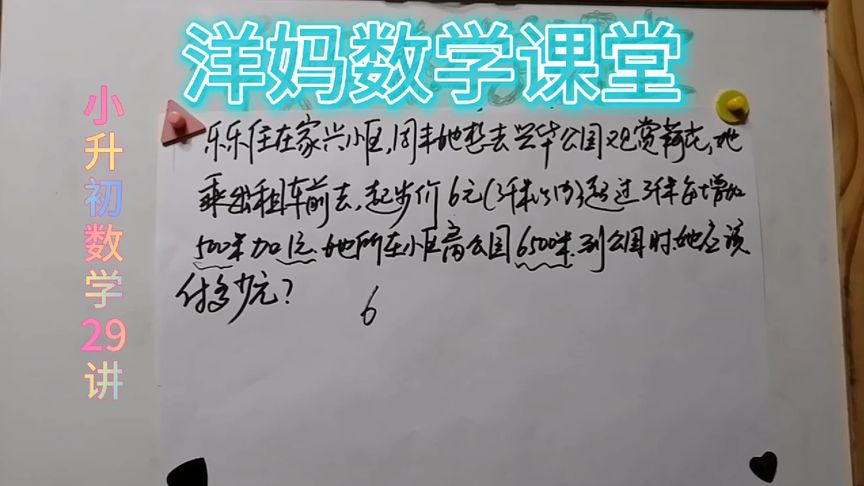 洋妈数学课堂
小升初数学29讲
乐乐住在家兴小区,周末她想去兴华公园观赏荷花,她
乘出租车前去,起步价6元(3千米以内)超过3千米每增加
500米加1元.她所在小区离公园6500米.到公园时她应该
付多少元?
6